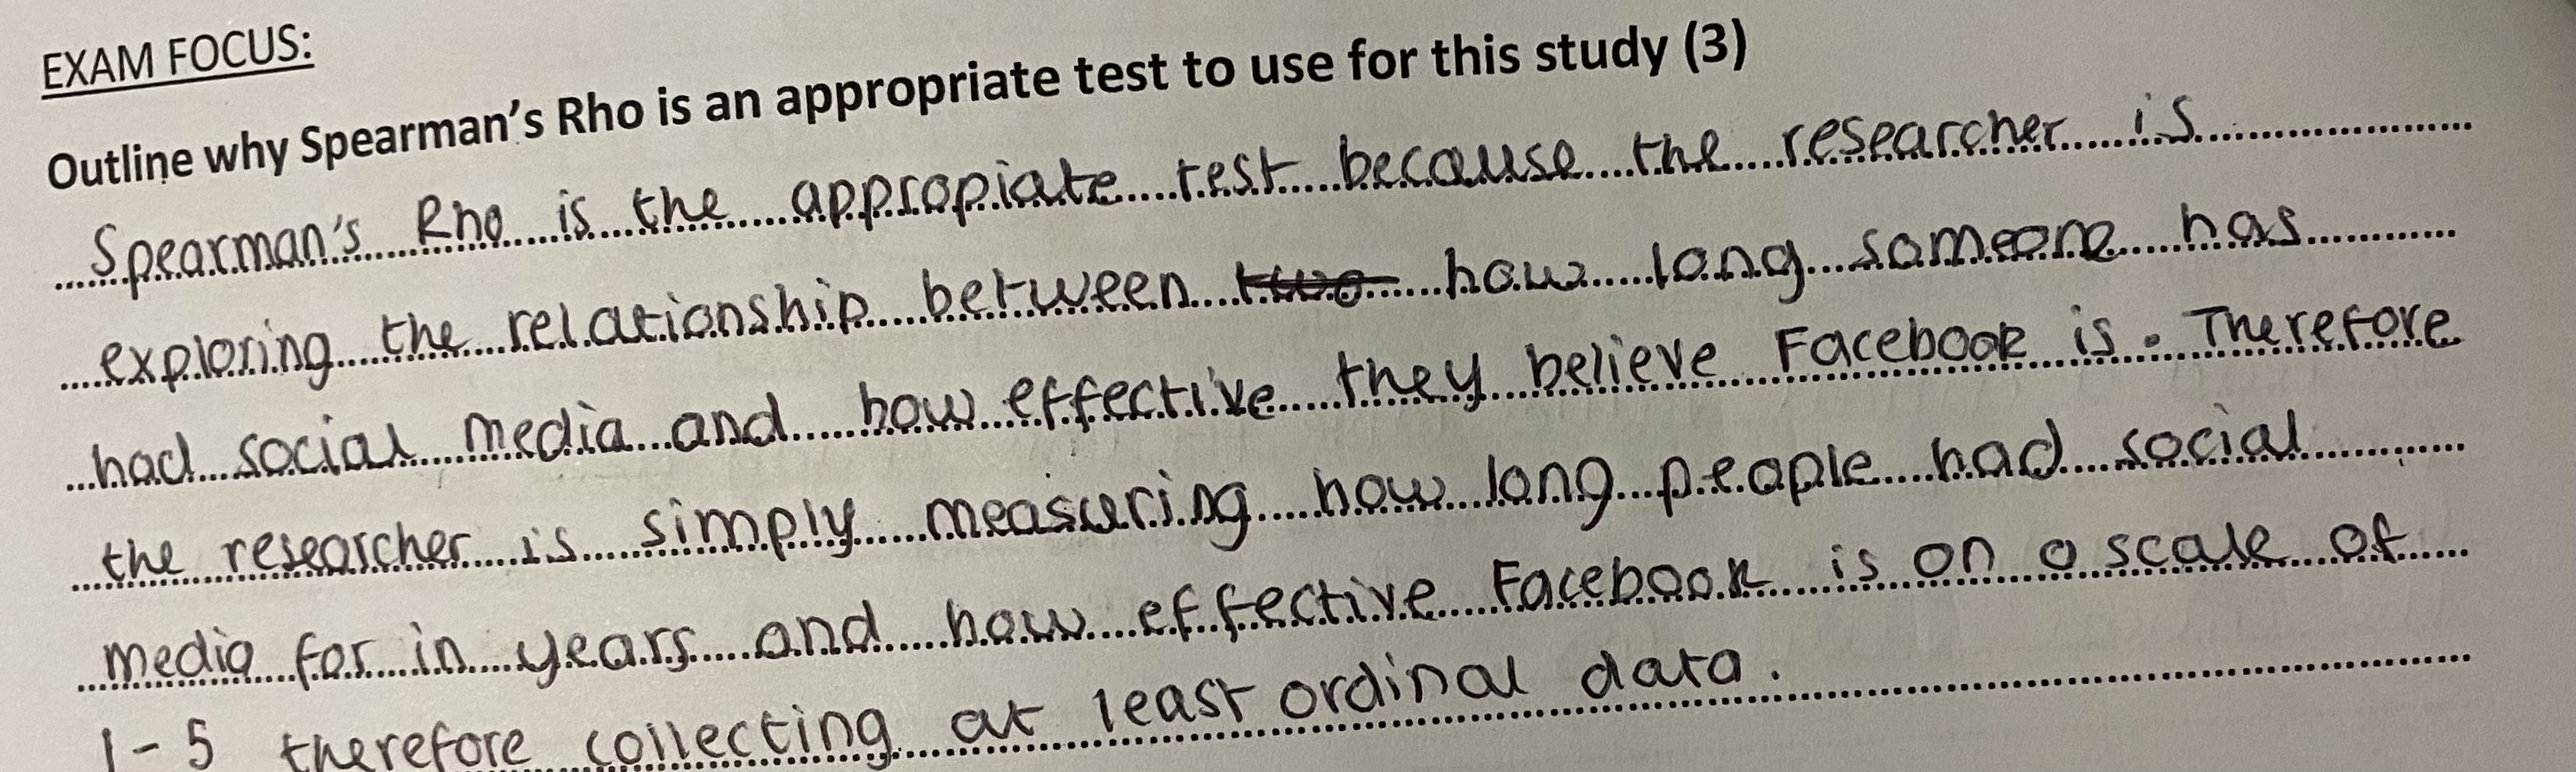 EXAM FOCUS:
Outline why Spearman's Rho is an appropriate test to use for this study (3)
Spearman's Rho is the appropiate test because the researcher is
exploring the relationship between two how long someone has
had social media and how effective they believe Facebook is. Therefore
the researcher is simply measuring how long people had social
media for in years and how effective Facebook is on a scale of
1-5 therefore collecting at least ordinal data.